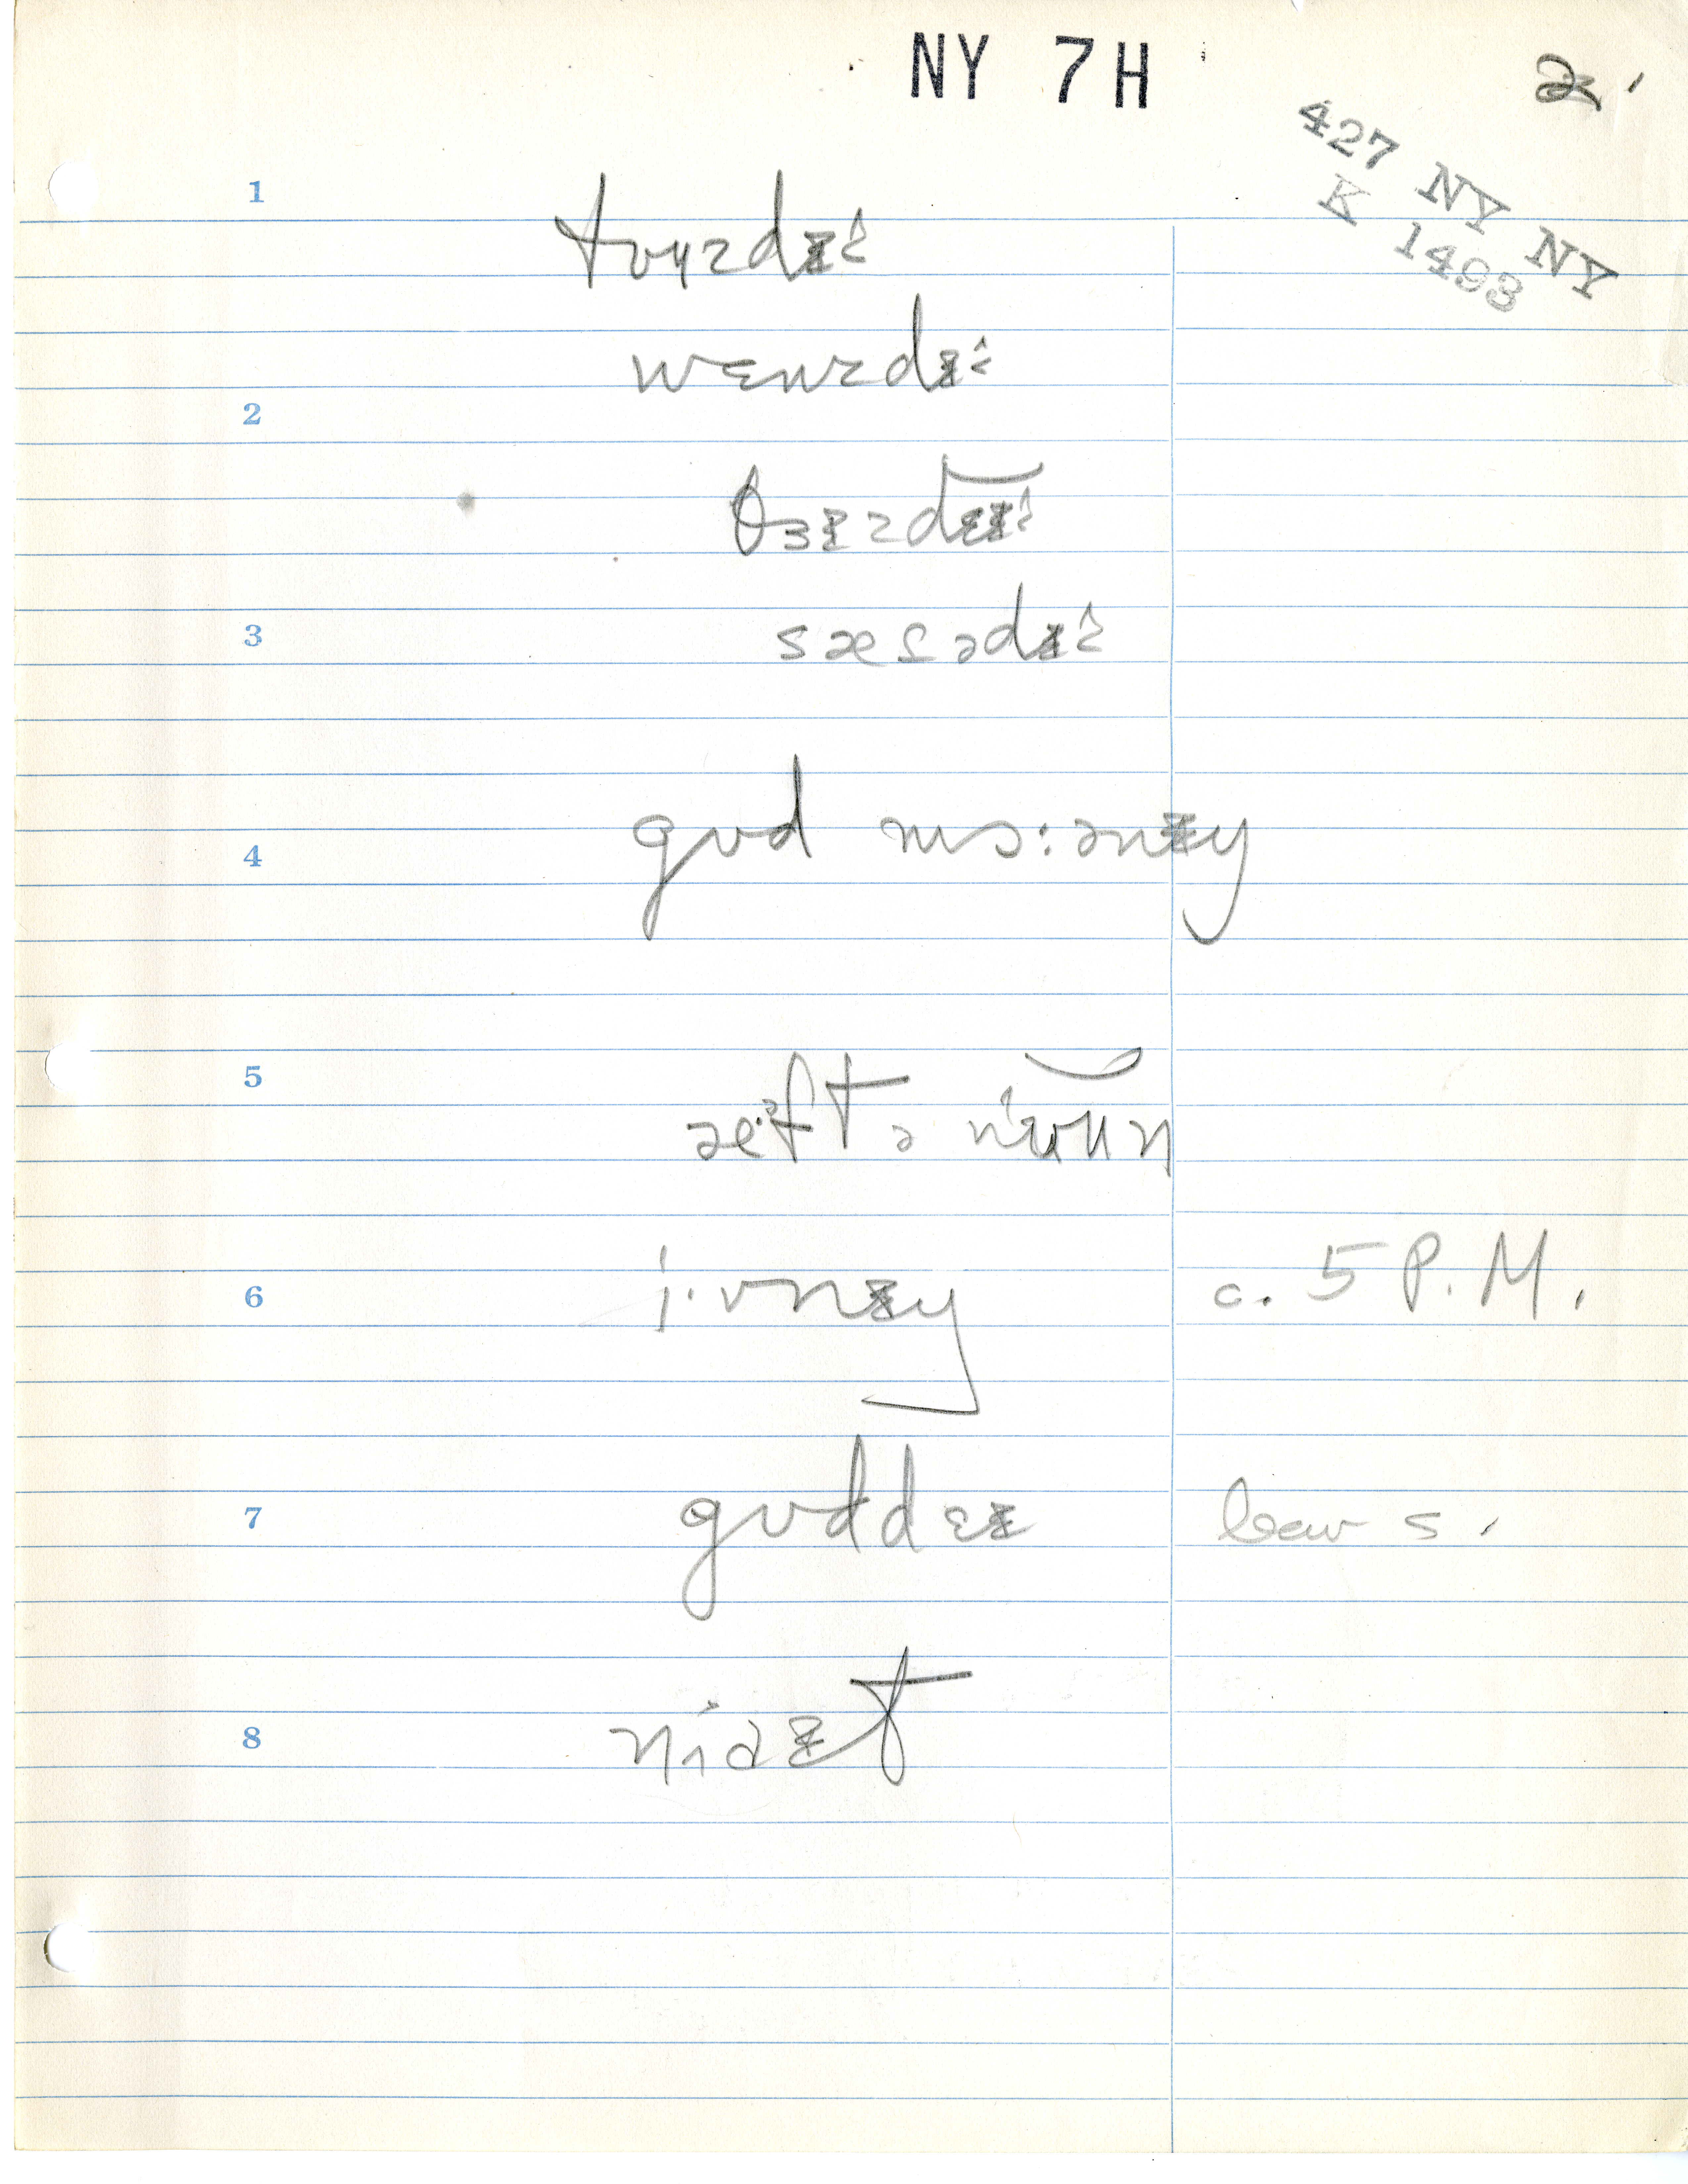 NY 7H
2
427 NY NY
K 1493
1
tʊʉzdɪ^
wɛnzdɪ^
2
θɜɪzdɛɪ^
3
sæṱədɪ^
4 gʊd mɔ:ənɪŋ
5 æ^ftə nʊun
6 i·vnɪŋ c. 5 P.M.
7 gʊddɛɪ
8 naɪt